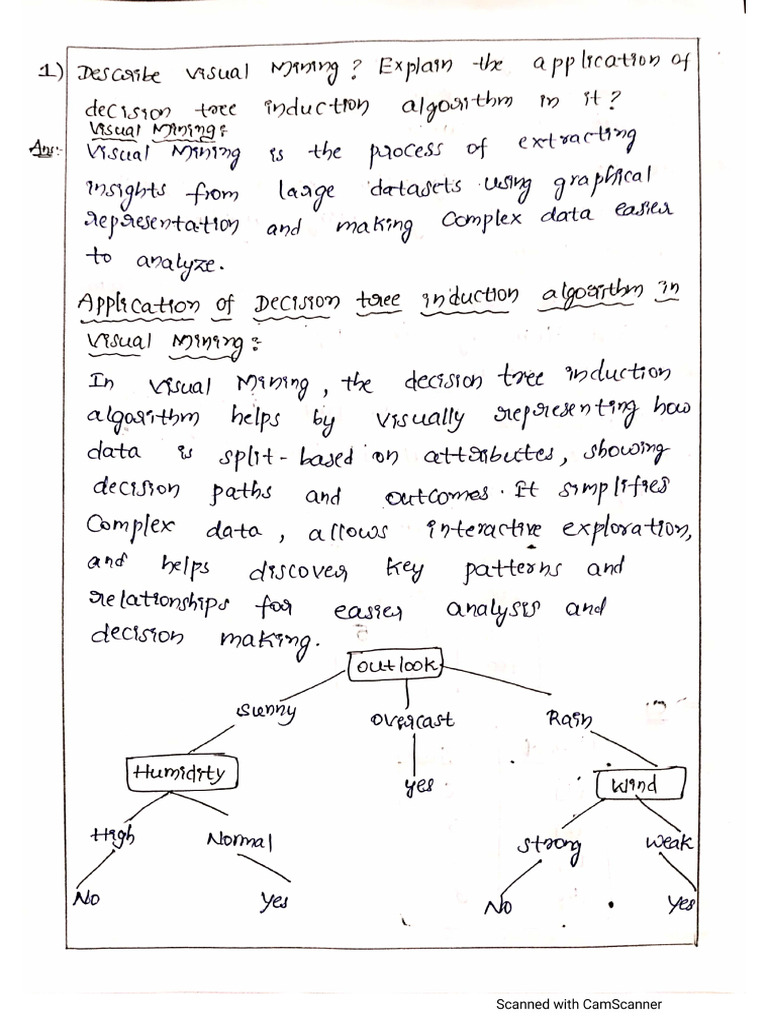 1) Describe visual Mining? Explain the application of
decision tree induction algorithm in it?
Visual Mining:
Ans:- Visual Mining is the process of extracting
insights from large datasets using graphical
representation and making complex data easier
to analyze.
Application of Decision tree induction algorithm in
Visual Mining:
In visual Mining, the decision tree induction
algorithm helps by visually representing how
data is split-based on attributes, showing
decision paths and outcomes. It simplifies
Complex data, allows interactive exploration,
and helps discover key patterns and
relationships for easier analysis and
decision making.
Outlook
Sunny Overcast Rain
Humidity yes Wind
High Normal Strong Weak
No Yes No Yes
Scanned with CamScanner